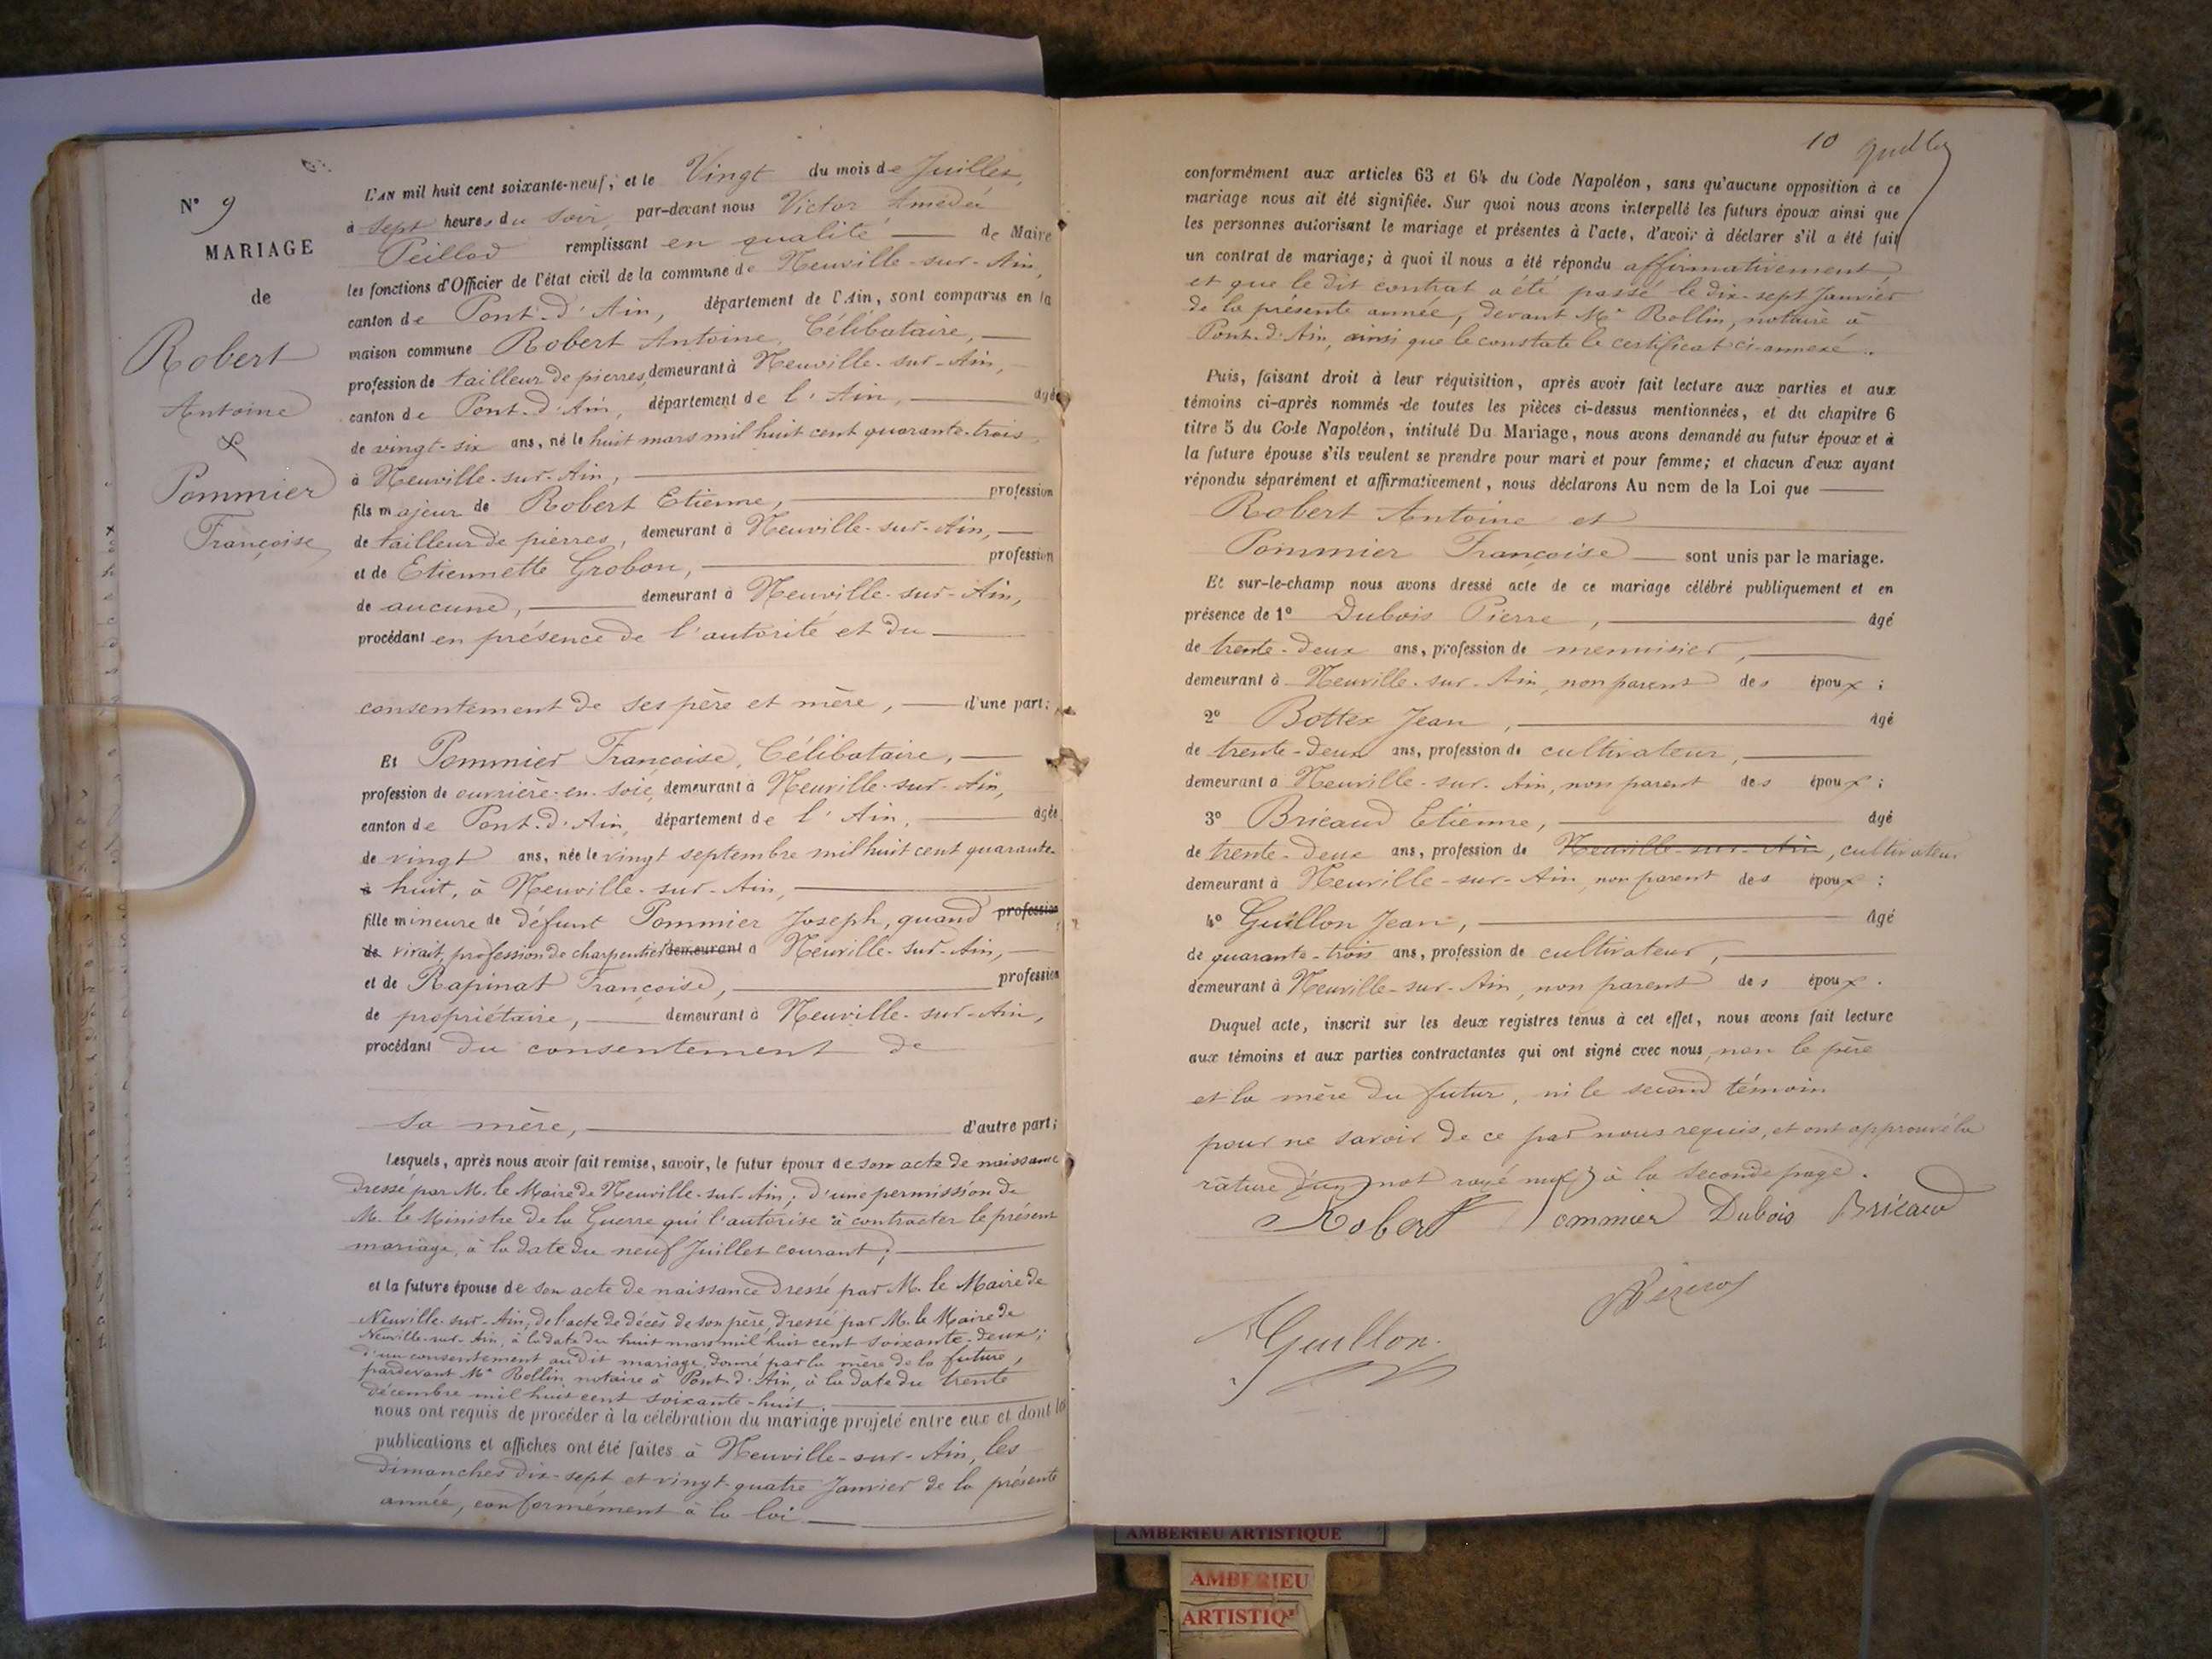 N° 9
MARIAGE
de
Robert
Antoine
&
Pommier
Françoise
L'AN mil huit cent soixante-neuf, et le Vingt du mois de Juillet,
à sept heures du soir, par-devant nous Victor Amédée
Peillod remplissant en qualité de Maire
les fonctions d'Officier de l'état civil de la commune de Neuville-sur-Ain,
canton de Pont-d'Ain, département de l'Ain, sont comparus en la
maison commune Robert Antoine, Célibataire,
profession de tailleur de pierres, demeurant à Neuville-sur-Ain,
canton de Pont-d'Ain, département de l'Ain, âgé
de vingt-six ans, né le huit mars mil huit cent quarante-trois
à Neuville-sur-Ain,
fils majeur de Robert Etienne, profession
de tailleur de pierres, demeurant à Neuville-sur-Ain,
et de Etiennette Grobon, profession
de aucune, demeurant à Neuville-sur-Ain,
procédant en présence de l'autorité et du
consentement de ses père et mère, d'une part;
Et Pommier Françoise, Célibataire,
profession de ouvrière-en-soie, demeurant à Neuville-sur-Ain,
canton de Pont-d'Ain, département de l'Ain, âgée
de vingt ans, née le vingt septembre mil huit cent quarante-
à huit, à Neuville-sur-Ain,
fille mineure de défunt Pommier Joseph, quand profession
de vivait, profession de charpentier demeurant à Neuville-sur-Ain,
et de Rapinat Françoise, profession
de propriétaire, demeurant à Neuville-sur-Ain,
procédant du consentement de
sa mère, d'autre part;
Lesquels, après nous avoir fait remise, savoir, le futur époux de son acte de naissance
dressé par M. le Maire de Neuville-sur-Ain; d'une permission de
M. le Ministre de la Guerre qui l'autorise à contracter le présent
mariage, à la date du neuf Juillet courant;
et la future épouse de son acte de naissance dressé par M. le Maire de
Neuville-sur-Ain; de l'acte de décès de son père, dressé par M. le Maire de
Neuville-sur-Ain, à la date du huit mars mil huit cent soixante-deux;
d'un consentement au dit mariage, donné par la mère de la future,
pardevant Me Rollin, notaire à Pont-d'Ain, à la date du trente
décembre mil huit cent soixante-huit.
nous ont requis de procéder à la célébration du mariage projeté entre eux et dont les
publications et affiches ont été faites à Neuville-sur-Ain, les
dimanches dix-sept et vingt-quatre Janvier de la présente
année, conformément à la loi
10
conformément aux articles 63 et 64 du Code Napoléon, sans qu'aucune opposition à ce
mariage nous ait été signifiée. Sur quoi nous avons interpellé les futurs époux ainsi que
les personnes autorisant le mariage et présentes à l'acte, d'avoir à déclarer s'il a été fait
un contrat de mariage; à quoi il nous a été répondu affirmativement,
et que le dit contrat a été passé le dix-sept Janvier
de la présente année, devant Me Rollin, notaire à
Pont-d'Ain, ainsi que le constate le certificat ci-annexé.
Puis, faisant droit à leur réquisition, après avoir fait lecture aux parties et aux
témoins ci-après nommés de toutes les pièces ci-dessus mentionnées, et du chapitre 6
titre 5 du Code Napoléon, intitulé Du Mariage, nous avons demandé au futur époux et à
la future épouse s'ils veulent se prendre pour mari et pour femme; et chacun d'eux ayant
répondu séparément et affirmativement, nous déclarons Au nom de la Loi que
Robert Antoine et
Pommier Françoise sont unis par le mariage.
Et sur-le-champ nous avons dressé acte de ce mariage célébré publiquement et en
présence de 1° Dubois Pierre, âgé
de trente-deux ans, profession de menuisier,
demeurant à Neuville-sur-Ain, non parent des époux;
2° Bottex Jean, âgé
de trente-deux ans, profession de cultivateur,
demeurant à Neuville-sur-Ain, non parent des époux;
3° Bricaud Etienne, âgé
de trente-deux ans, profession de Neuville-sur-Ain, cultivateur
demeurant à Neuville-sur-Ain, non parent des époux;
4° Guillon Jean, âgé
de quarante-trois ans, profession de cultivateur,
demeurant à Neuville-sur-Ain, non parent des époux.
Duquel acte, inscrit sur les deux registres tenus à cet effet, nous avons fait lecture
aux témoins et aux parties contractantes qui ont signé avec nous, non le père
et la mère du futur, ni le second témoin
pour ne savoir de ce par nous requis, et ont approuvé la
rature d'un mot rayé nul à la seconde page.
Robert Pommier Dubois Bricaud
Guillon
AMBERIEU ARTISTIQUE
AMBERIEU
ARTISTIQ